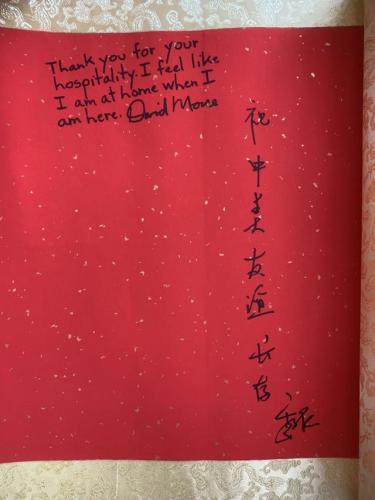 Thank you for your
hospitality. I feel like
I am at home when I
am here. David Morse
祝中美友谊长存